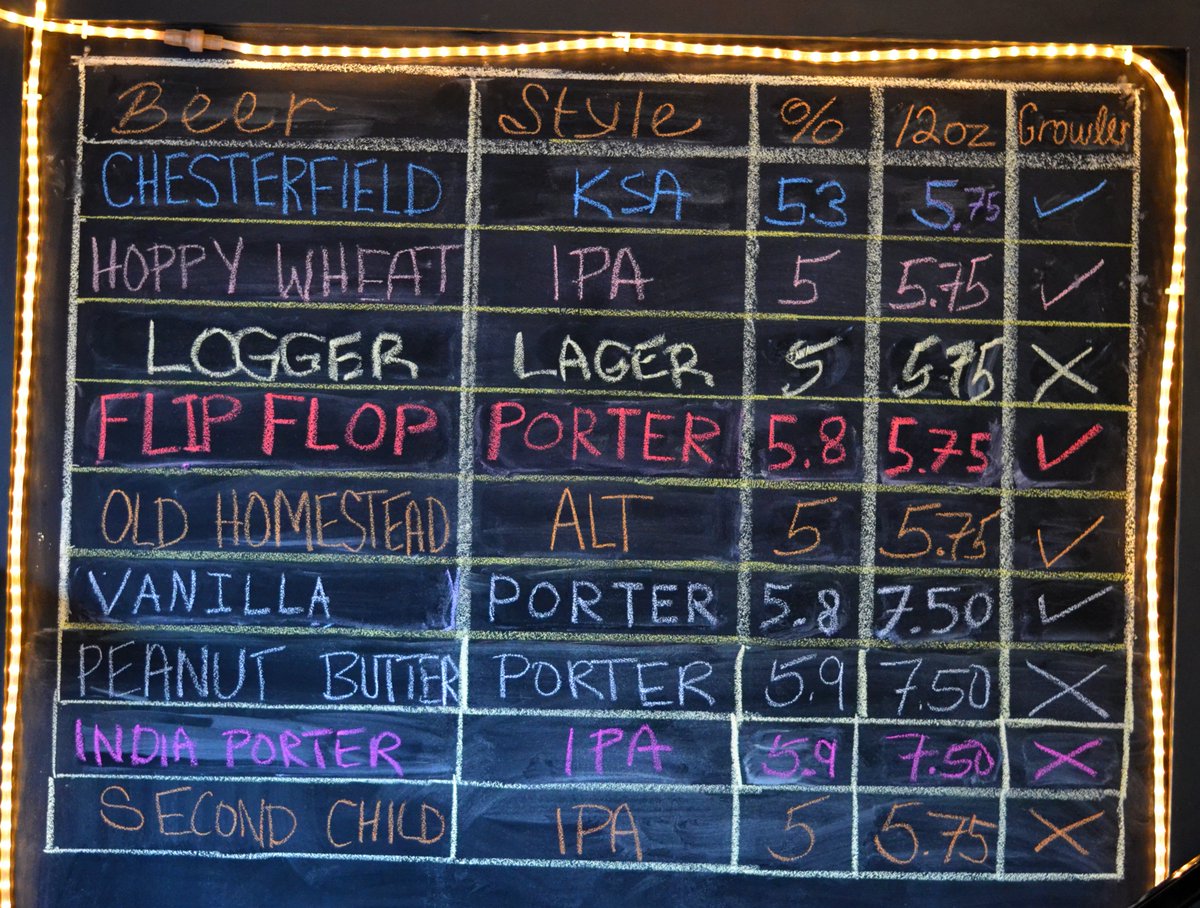 Beer Style % 12oz Growler
CHESTERFIELD KSA 53 5.75 ✓
HOPPY WHEAT IPA 5 5.75 ✓
LOGGER LAGER 5 5.75 X
FLIP FLOP PORTER 5.8 5.75 ✓
OLD HOMESTEAD ALT 5 5.75 ✓
VANILLA PORTER 5.8 7.50 ✓
PEANUT BUTTER PORTER 5.9 7.50 X
INDIA PORTER IPA 5.9 7.50 X
SECOND CHILD IPA 5 5.75 X